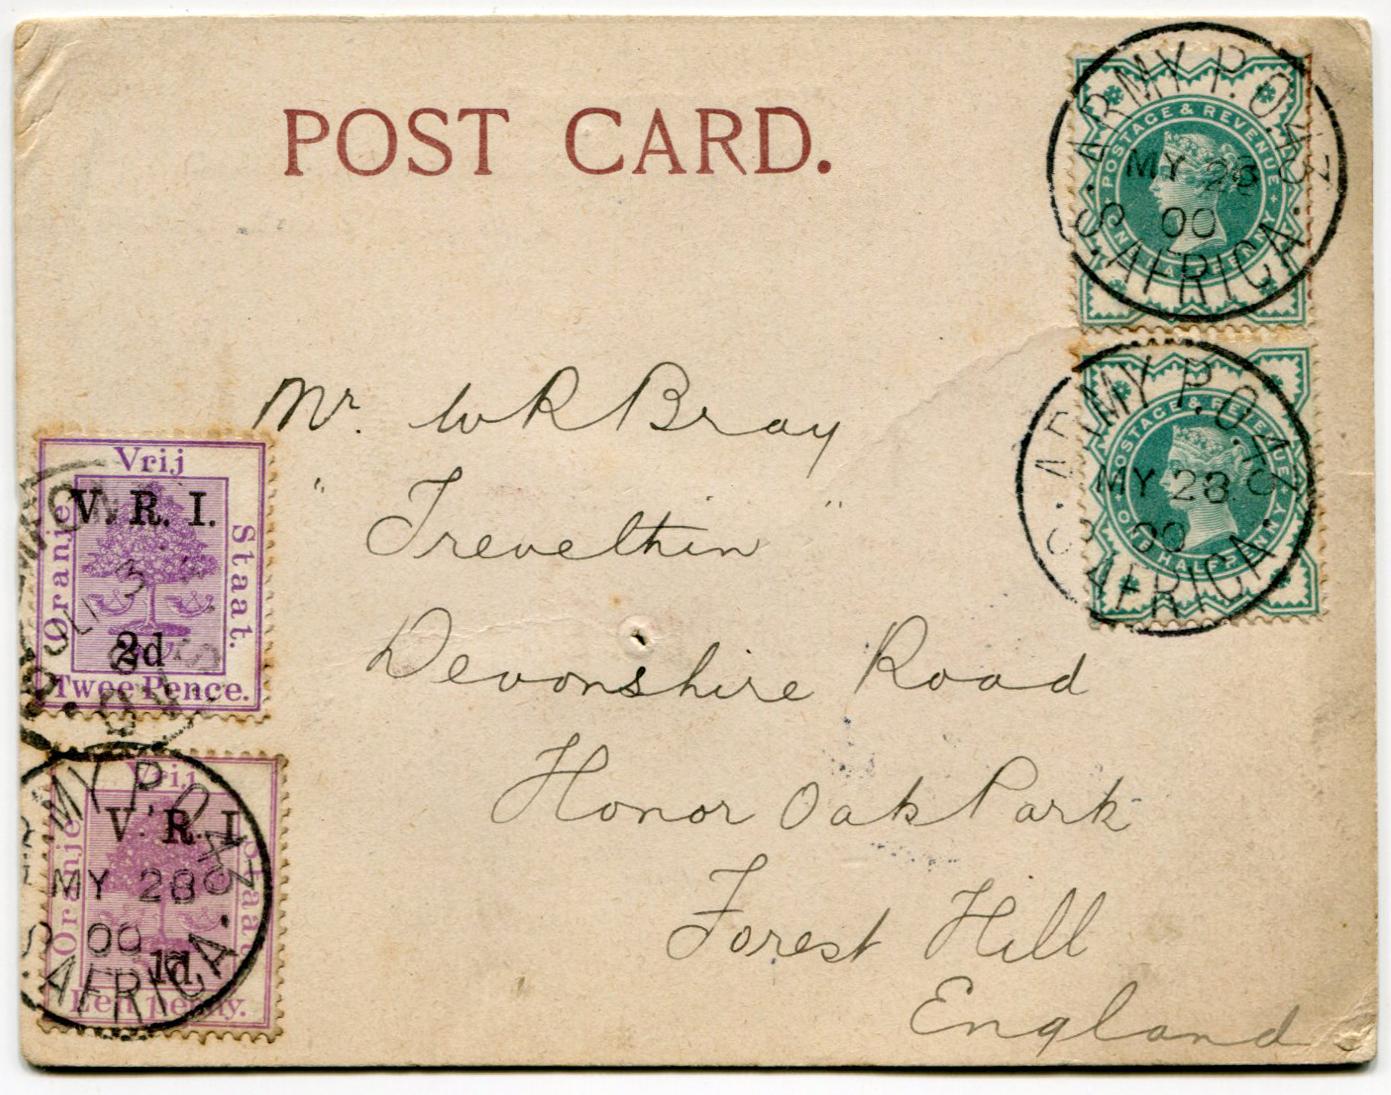 POST CARD.
ARMY P.O. 43
MY 28
00
S. AFRICA.
POSTAGE & REVENUE
ONE HALFPENNY
ARMY P.O. 43
MY 28
00
S. AFRICA.
POSTAGE & REVENUE
ONE HALFPENNY
Mr. W R Bray
" Trevelthin "
Devonshire Road
Honor Oak Park
Forest Hill
England
Vrij
Oranje
Staat.
V. R. I.
2d
Twee Pence.
Vrij
Oranje
Staat.
V. R. I.
1d
Een penny.
ARMY P.O. 43
MY 28
00
S. AFRICA.